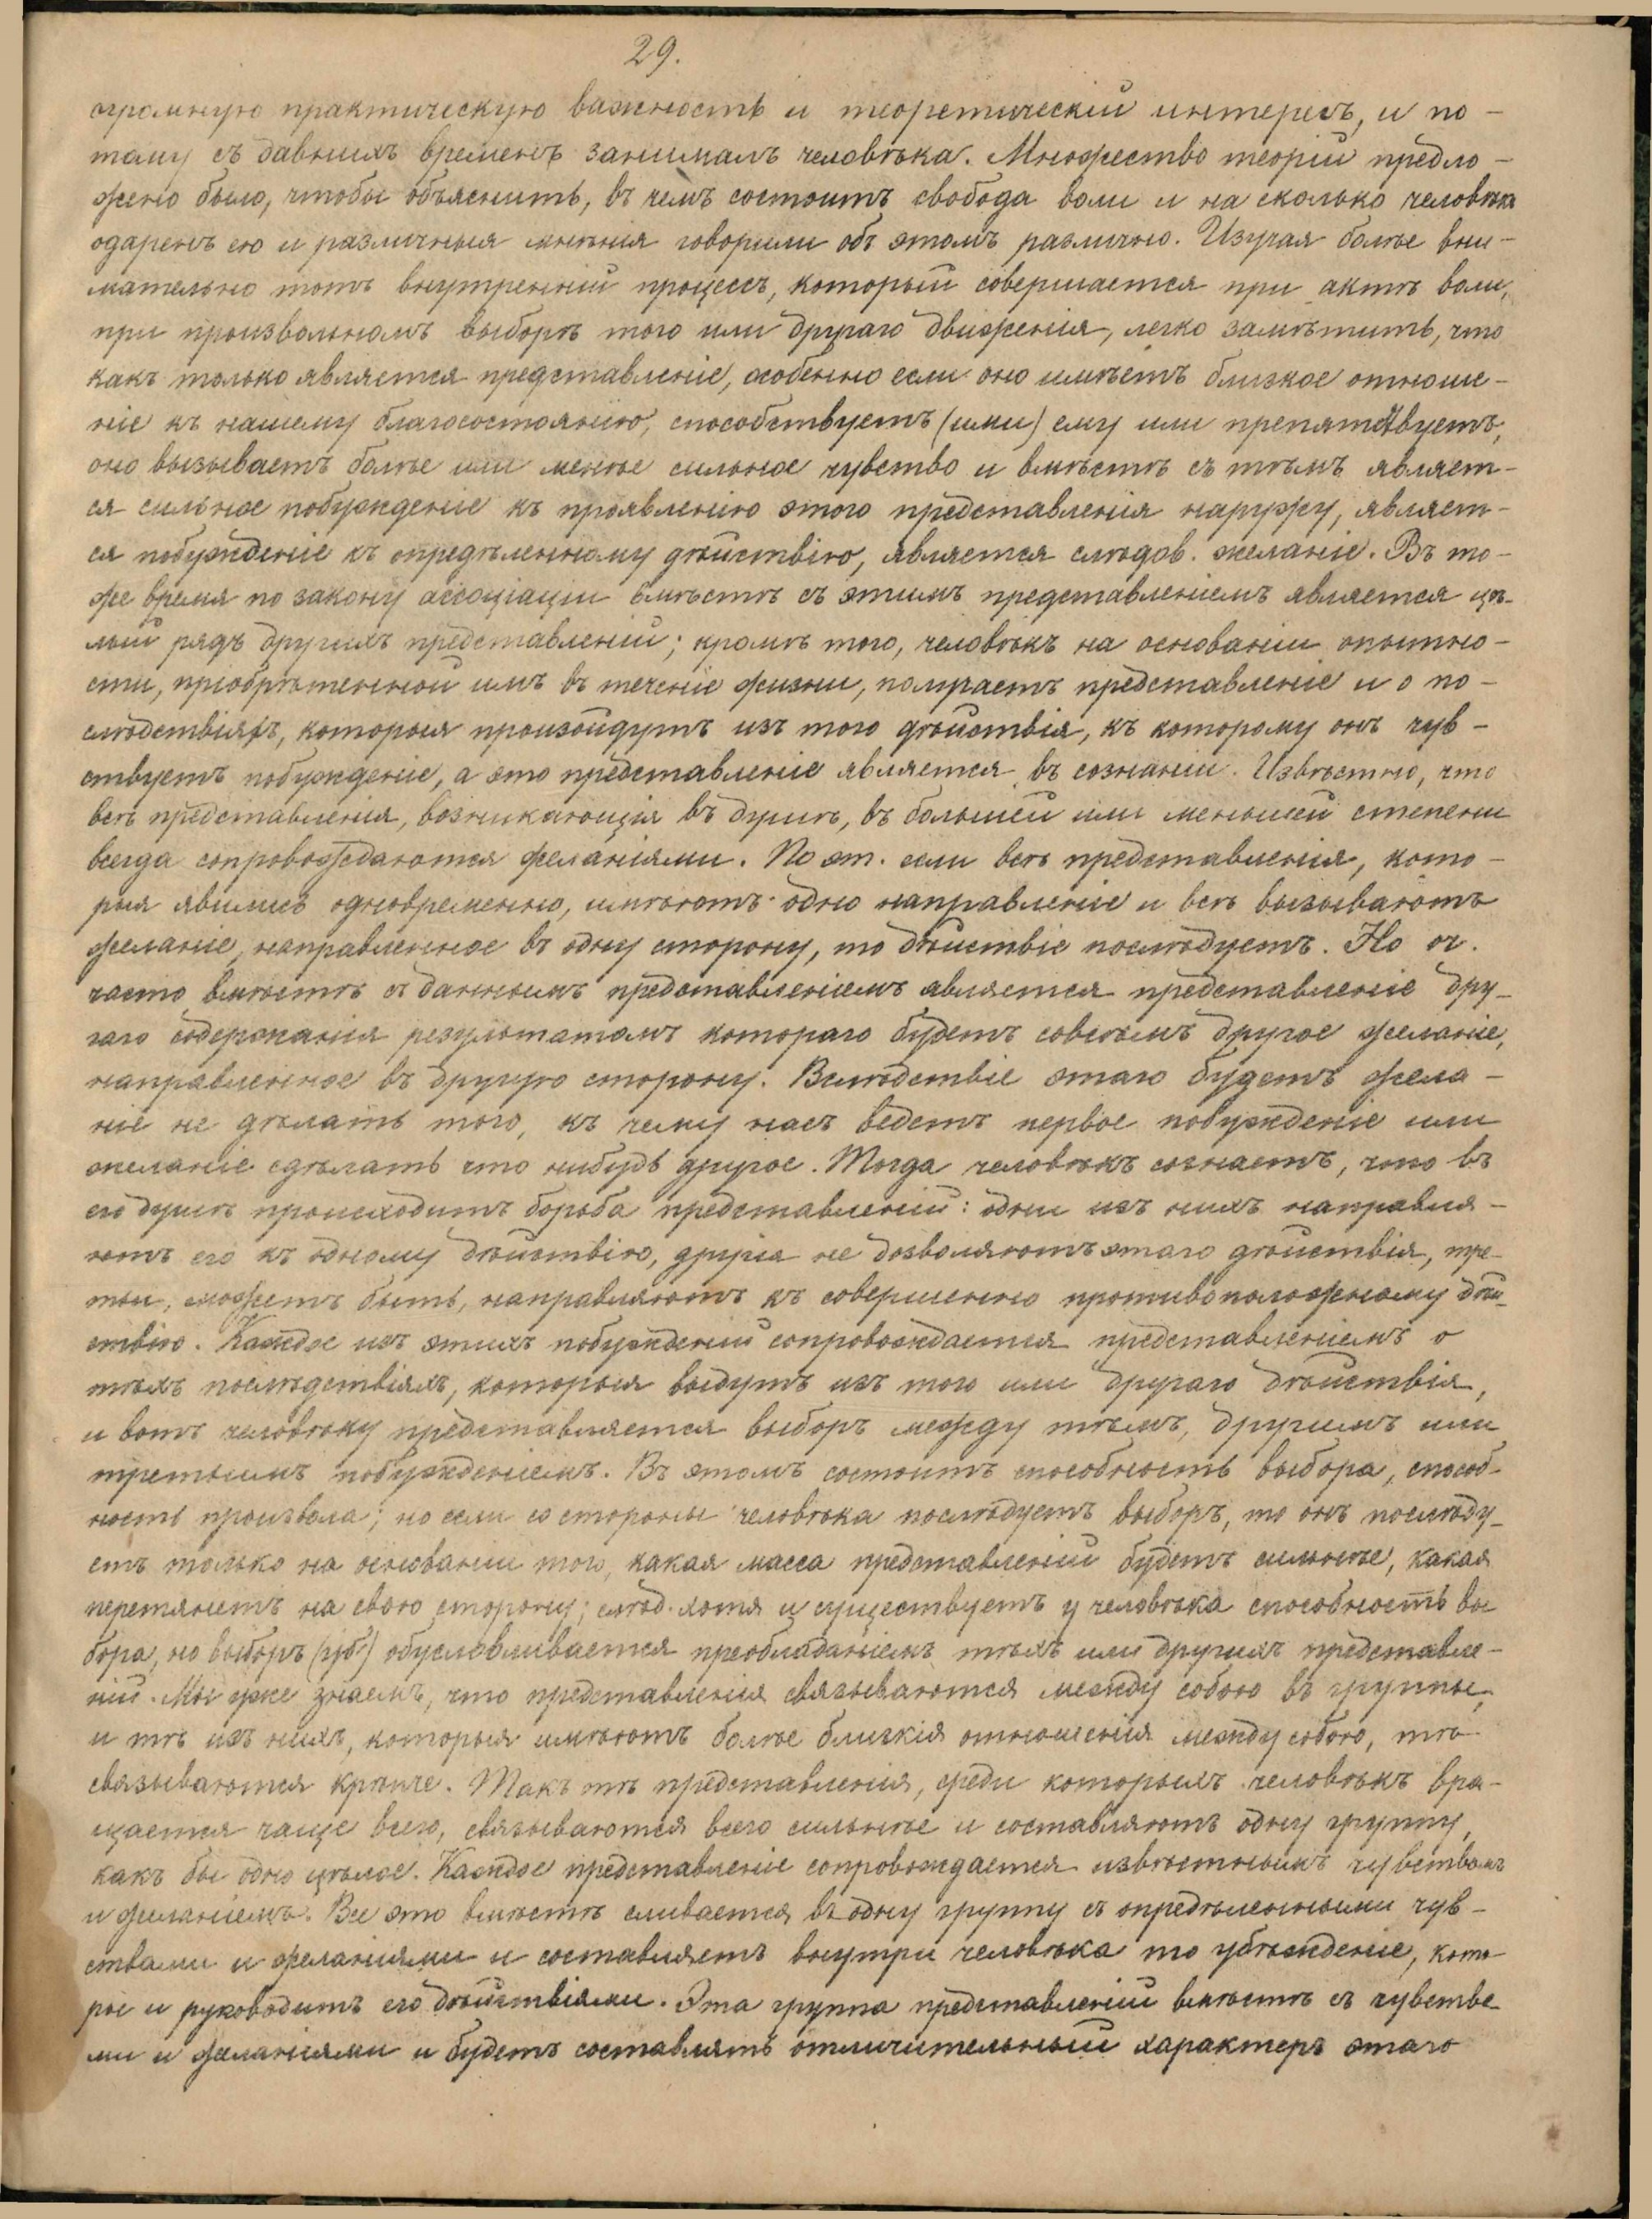 29.
огромную практическую важность и теоретическій интересъ, и по-
тому съ давнихъ временъ занималъ человѣка. Множество теорій предло-
жено было, чтобы объяснить, въ чемъ состоитъ свобода воли и на сколько человѣкъ
одаренъ ею и различныя мнѣнія говорили объ этомъ различно. Изучая болѣе вни-
мательно тотъ внутренній процессъ, который совершается при актѣ воли,
при произвольномъ выборѣ того или другаго движенія, легко замѣтить, что
какъ только является представленіе, особенно если оно имѣетъ близкое отноше-
ніе къ нашему благосостоянію, способствуетъ (или) ему или препятствуетъ,
оно вызываетъ болѣе или менѣе сильное чувство и вмѣстѣ съ тѣмъ являет-
ся сильное побужденіе къ проявленію этого представленія наружу, являет-
ся побужденіе къ опредѣленному дѣйствію, является слѣдов. желаніе. Въ то-
же время по закону ассоціаціи вмѣстѣ съ этимъ представленіемъ является цѣ-
лый рядъ другихъ представленій; кромѣ того, человѣкъ на основаніи опытно-
сти, пріобрѣтенной имъ въ теченіе жизни, получаетъ представленіе и о по-
слѣдствіяхъ, которыя произойдутъ изъ того дѣйствія, къ которому онъ чув-
ствуетъ побужденіе, а это представленіе является въ сознаніи. Извѣстно, что
всѣ представленія, возникающія въ душѣ, въ большей или меньшей степени
всегда сопровождаются желаніями. По эт. если всѣ представленія, кото-
рыя явились одновременно, имѣютъ одно направленіе и всѣ вызываютъ
желаніе, направленное въ одну сторону, то дѣйствіе послѣдуетъ. Но оч.
часто вмѣстѣ съ даннымъ представленіемъ является представленіе дру-
гаго содержанія результатомъ котораго будетъ совсѣмъ другое желаніе,
направленное въ другую сторону. Вслѣдствіе этаго будетъ жела-
ніе не дѣлать того, къ чему насъ ведетъ первое побужденіе или
желаніе сдѣлать что нибудь другое. Тогда человѣкъ сознаетъ, что въ
его душѣ происходитъ борьба представленій: одни изъ нихъ направля-
ютъ его къ одному дѣйствію, другія не дозволяютъ этаго дѣйствія, тре-
тьи, можетъ быть, направляютъ къ совершенно противоположному дѣй-
ствію. Каждое изъ этихъ побужденій сопровождается представленіемъ о
тѣхъ послѣдствіяхъ, которыя выдутъ изъ того или другаго дѣйствія,
и вотъ человѣку представляется выборъ между тѣмъ, другимъ или
третьимъ побужденіемъ. Въ этомъ состоитъ способность выбора, способ-
ность произвола; но если со стороны человѣка послѣдуетъ выборъ, то онъ послѣду-
етъ только на основаніи того, какая масса представленій будетъ сильнѣе, какая
перетянетъ на свою сторону; слѣд. хотя и существуетъ у человѣка способность вы
бора, но выборъ обусловливается преобладаніемъ тѣхъ или другихъ представле-
ній. Мы уже знаемъ, что представленія связываются между собою въ группы,
и тѣ изъ нихъ, которыя имѣютъ болѣе близкія отношенія между собою, тѣ
связываются крѣпче. Такъ тѣ представленія, среди которыхъ человѣкъ вра-
щается чаще всего, связываются всего сильнѣе и составляютъ одну группу,
какъ бы одно цѣлое. Каждое представленіе сопровождается извѣстнымъ чувствомъ
и желаніемъ. Все это вмѣстѣ сливается въ одну группу съ опредѣленными чув-
ствами и желаніями и составляетъ внутри человѣка то убѣжденіе, кото-
рое и руководитъ его дѣйствіями. Эта группа представленій вмѣстѣ съ чувства
ми и желаніями и будетъ составлять отличительный характеръ этаго